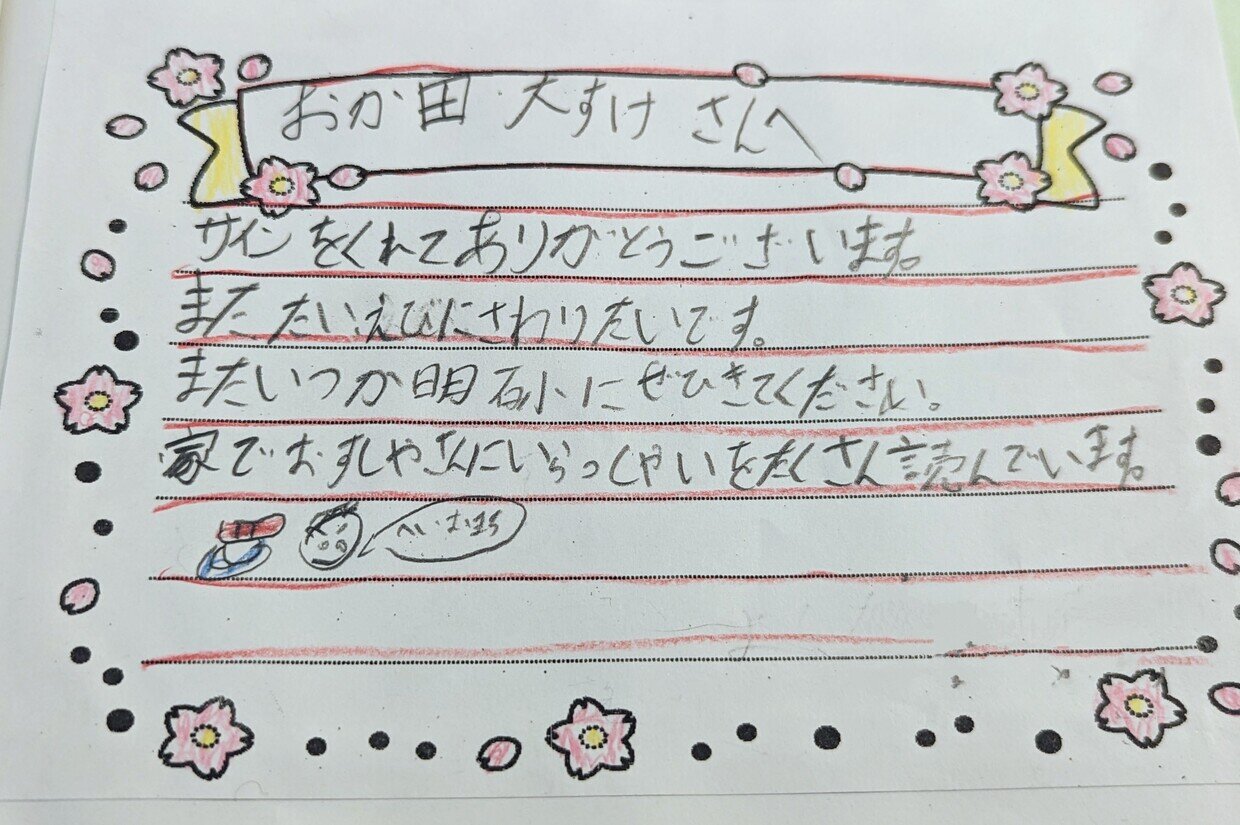 おか田 大すけ さんへ
サインをくれてありがとうございます。
またたいえびにさわりたいです。
またいつか明石小にぜひきてください。
家でおすしやさんにいらっしゃいをたくさん読んでいます。
へいおまち